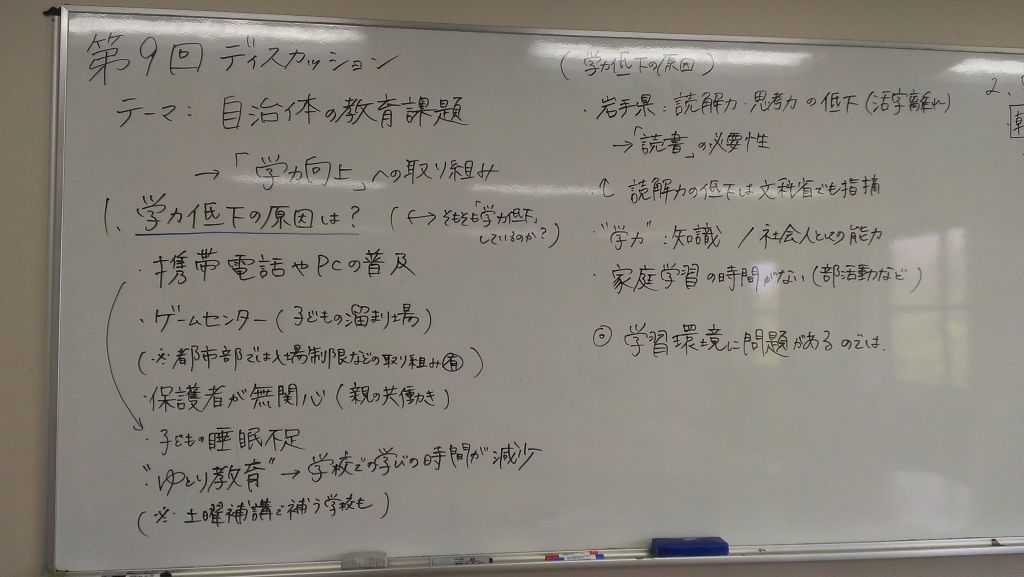 第9回 ディスカッション
テーマ: 自治体の教育課題
→「学力向上」への取り組み
1. 学力低下の原因は? (←→そもそも「学力低下」
しているのか?)
・携帯電話やPCの普及
・ゲームセンター(子どもの溜まり場)
(※都市部では入場制限などの取り組み有)
・保護者が無関心(親の共働き)
・子どもの睡眠不足
"ゆとり教育"→学校での学びの時間が減少
(※土曜補講で補う学校も)
(学力低下の原因)
・岩手県:読解力・思考力の低下(活字離れ)
→「読書」の必要性
↑読解力の低下は文科省でも指摘
・"学力":知識 / 社会人としての能力
・家庭学習の時間がない(部活動など)
◎ 学習環境に問題があるのでは.
2.